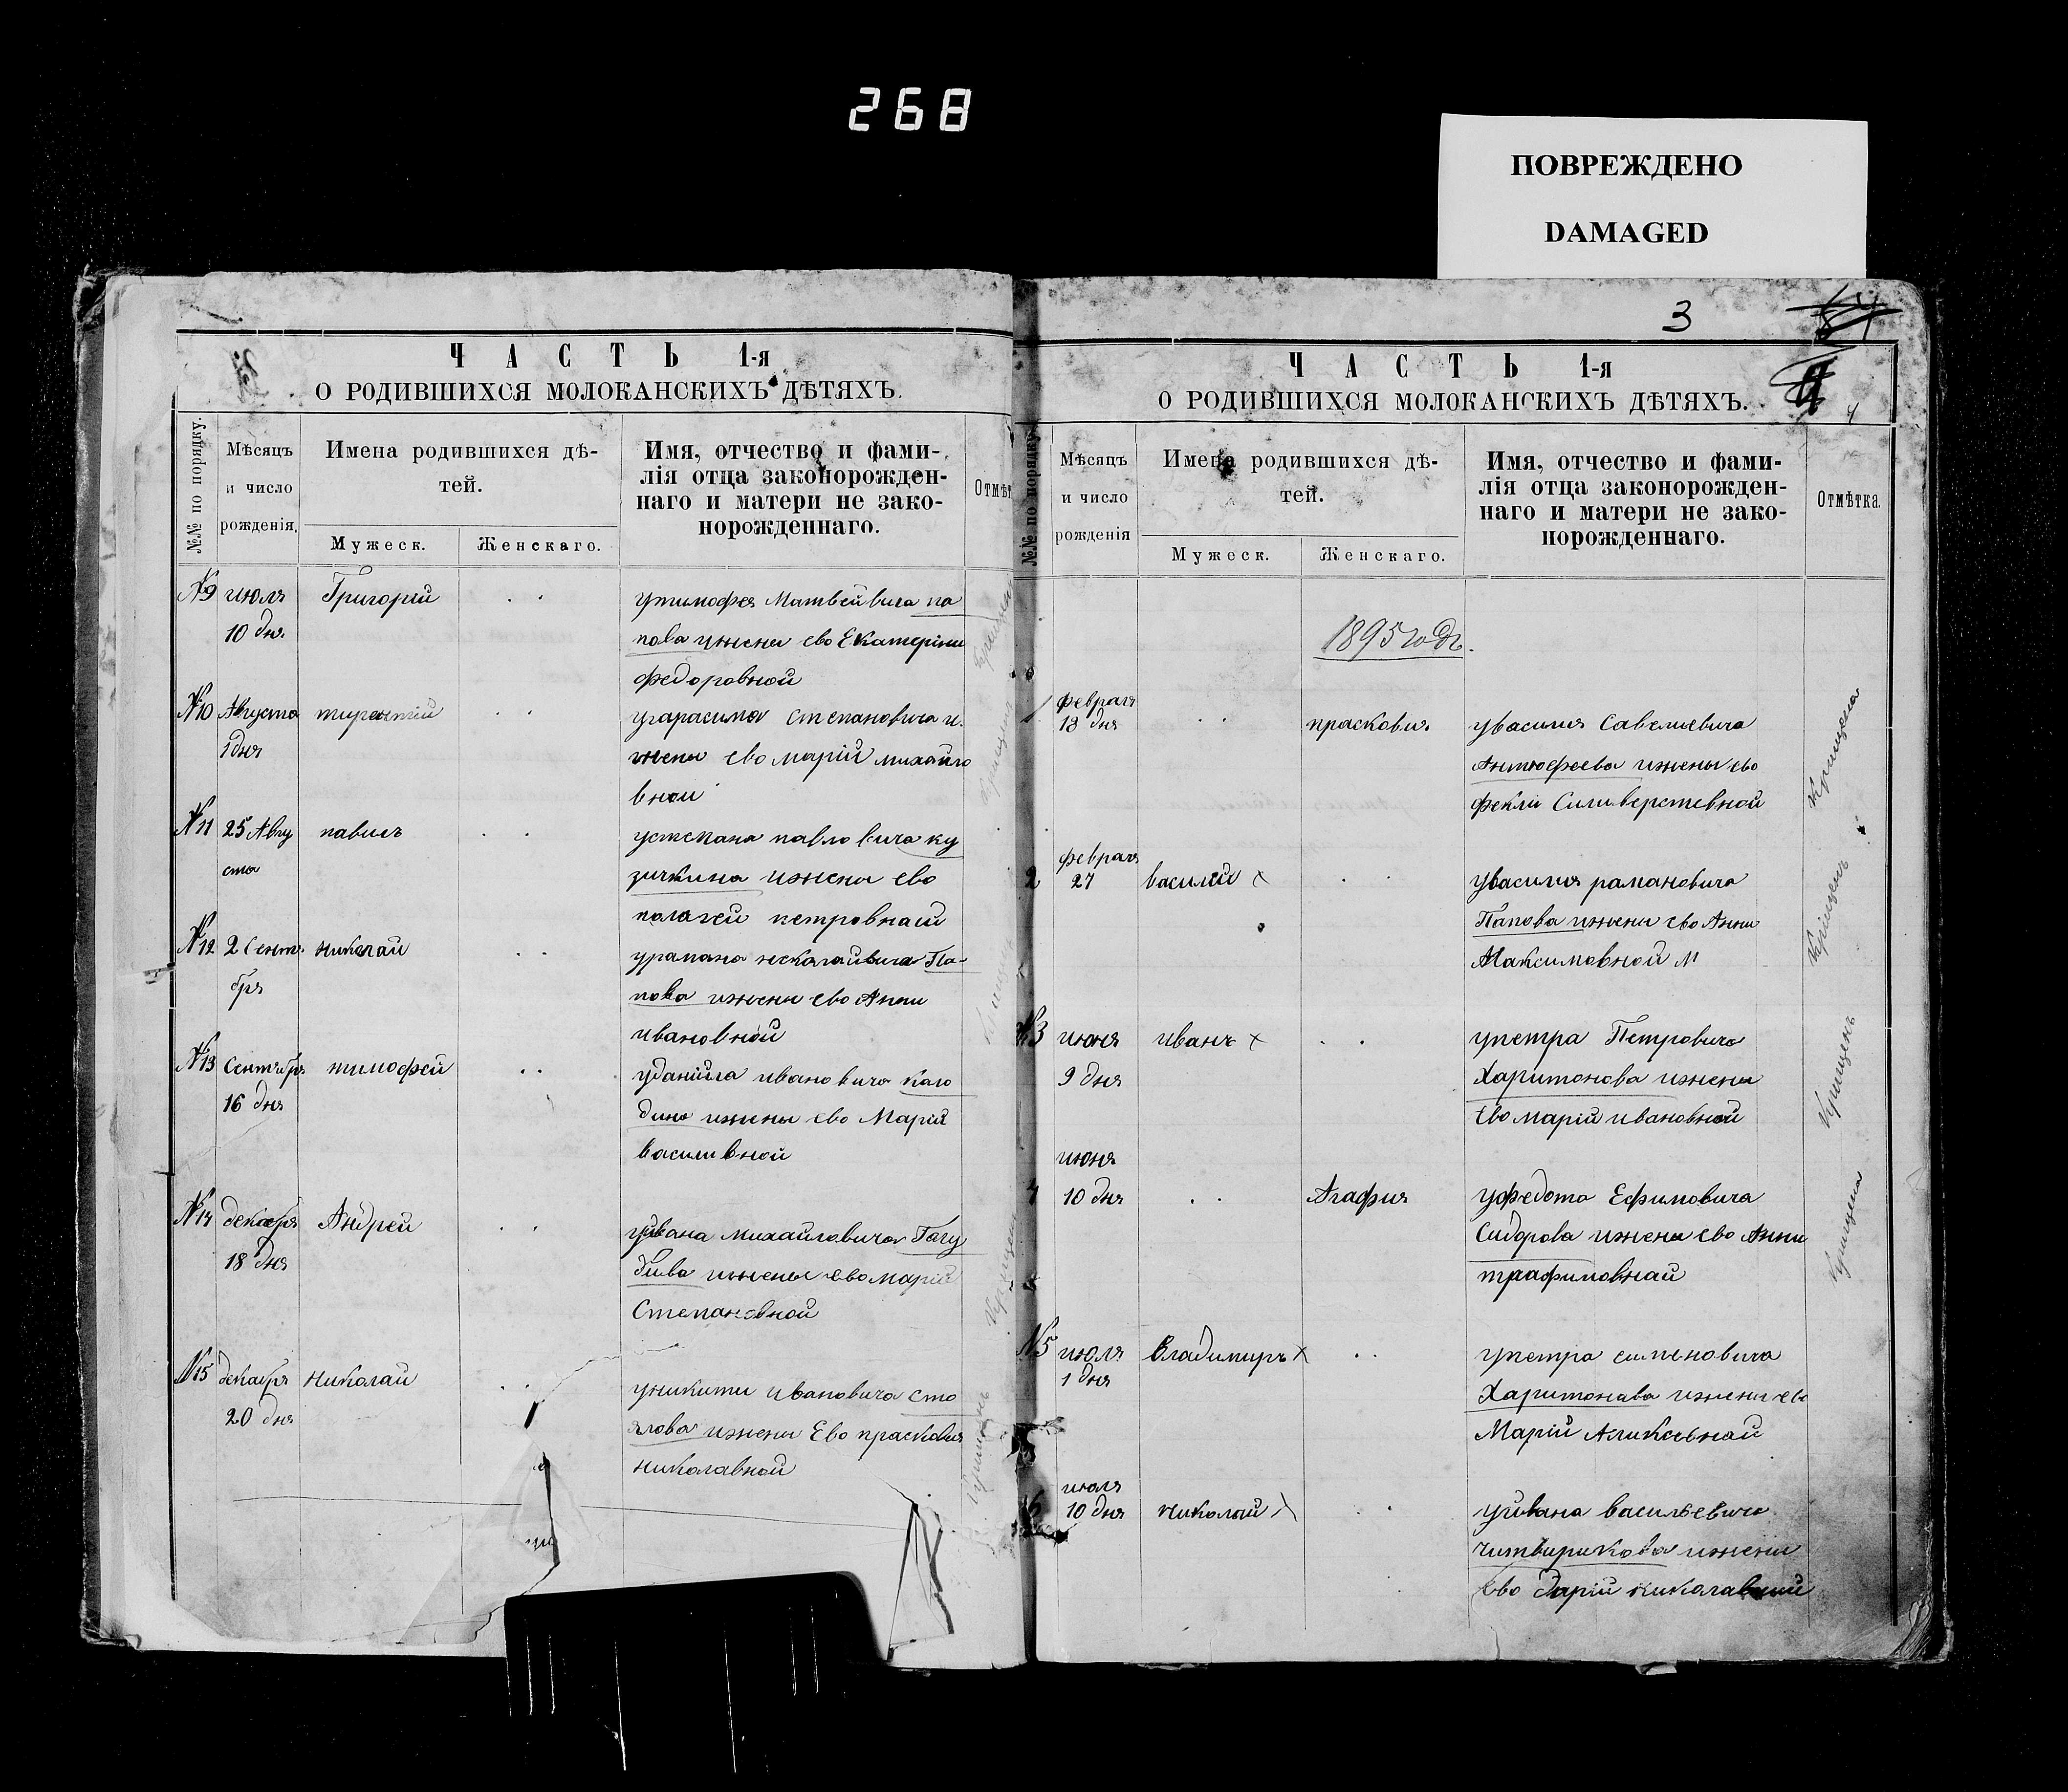 268
ПОВРЕЖДЕНО
DAMAGED
ЧАСТЬ 1-я
О РОДИВШИХСЯ МОЛОКАНСКИХЪ ДѢТЯХЪ.
№№ по порядку.
Мѣсяцъ
и число
рожденія.
Имена родившихся дѣ-
тей.
Мужеск.
Женскаго.
Имя, отчество и фами-
лія отца законорожден-
наго и матери не зако-
норожденнаго.
Отмѣт
№9 июля Григорий утимофея Матвейвича па
10 дня. пова ижены ево Екатерины
федоровной
№10 Августа тирентий угарасима степановича и.
1 дня жены ево марий михайло
вной
№11 25 Авгу павилъ устепана павловича ку
ста зичкина ижены ево
палагей петровнай
№12 2 Сент. николай урамана николайвича Па-
бря пова ижены ево Анни
ивановной
№13 Сентября тимофей уданийла ивановича кало
16 дня дина ижены ево Марий
василивной
№14 декабря Андрей уйвана михайловича Гагу
18 дня ижены ево марий
Степановной
№15 декабря николай уникити ивановича сто
20 дня ялова ижены Ево прасковия
николавной
3
4
ЧАСТЬ 1-я
О РОДИВШИХСЯ МОЛОКАНСКИХЪ ДѢТЯХЪ.
№№ по порядку.
Мѣсяцъ
и число
рожденія
Имена родившихся дѣ-
тей.
Мужеск.
Женскаго.
Имя, отчество и фами-
лія отца законорожден-
наго и матери не зако-
норожденнаго.
Отмѣтка.
1895 годъ.
1 февраля
13 дня прасковия увасилия Савелиевича
Антюфеева ижены ево
фекли Силиверстевной
Крищена
2 февраля
27 василий х увасилия рамановича
Папова ижены ево Анни
Максимовной М
Крищенъ
№3 июня иванъ х упетра Петровича
9 дня Харитонова ижены
Ево марий ивановной
Крищенъ
4 июня
10 дня Агафия уфедота Ефимовича
Сидорова ижены ево Анни
трафимовнай
Крищена
№5 июля Владимиръ х упетра сименовича
1 дня Харитонава ижены ево
Марий Аликсевнай
6 июля
10 дня николай х уйвана васильевича
Читвирикова ижены
Ево дарий николавной